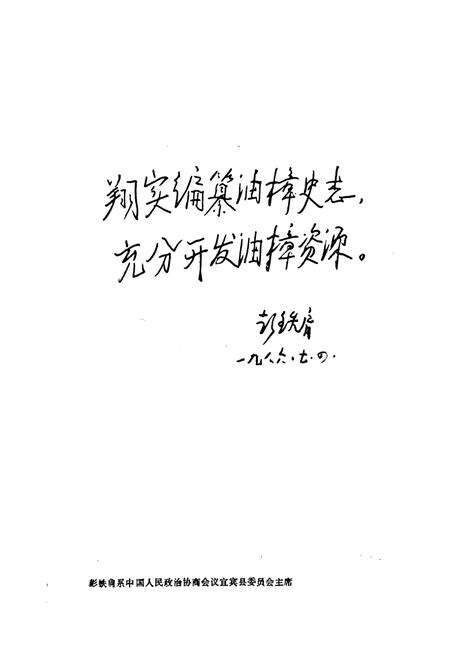 翔实编纂油樟史志，
充分开发油樟资源。
彭铁肩
一九八六.七.四.
彭铁肩系中国人民政治协商会议宜宾县委员会主席